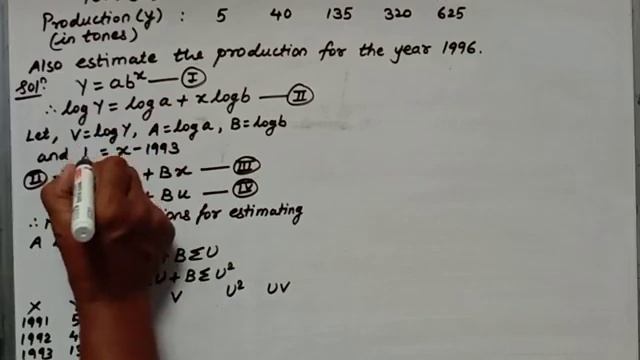 Production (y) : 5 40 135 320 625
(in tones)
Also estimate the production for the year 1996.
Solⁿ. Y = ab^x — I
∴ log Y = log a + x log b — II
Let, V = log Y, A = log a, B = log b
and = x - 1993
II + Bx — III
+ Bu — IV
∴ for estimating
A
+ BΣU
U + BΣU²
X V U² UV
1991 5
1992 4
1993